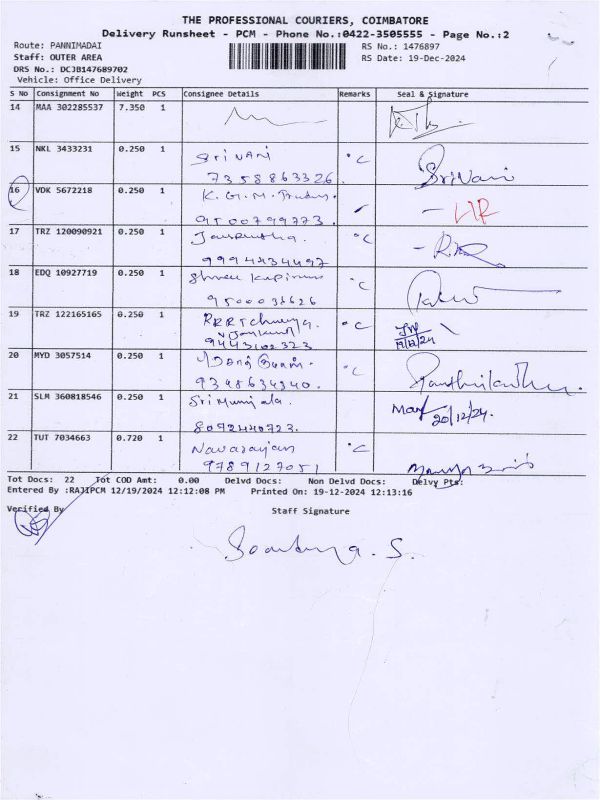 THE PROFESSIONAL COURIERS, COIMBATORE
Delivery Runsheet - PCM - Phone No.:0422-3505555 - Page No.:2
Route: PANNIMADAI
RS No.: 1476897
Staff: OUTER AREA
RS Date: 19-Dec-2024
DRS No.: DCJB147689702
Vehicle: Office Delivery
S No Consignment No Weight PCS Consignee Details Remarks Seal & Signature
14 MAA 302285537 7.350 1
15 NKL 3433231 0.250 1 Srivani °C Srivani
7358863326
16 VDK 5672218 0.250 1 K.G.M.
9500799773
17 TRZ 120090921 0.250 1 °C
9994434497
18 EDQ 10927719 0.250 1 Shree °C
9500031626
19 TRZ 122165165 0.250 1 °C
9443102323 19/12/24
20 MYD 3057514 0.250 1 °C
9398634340.
21 SLM 360818546 0.250 1 20/12/24.
8092440723.
22 TUT 7034663 0.720 1 Navarajan °C
9789127051
Tot Docs: 22 Tot COD Amt: 0.00 Delvd Docs: Non Delvd Docs: Delvy Pts:
Entered By :RAJIPCM 12/19/2024 12:12:08 PM Printed On: 19-12-2024 12:13:16
Verified By Staff Signature